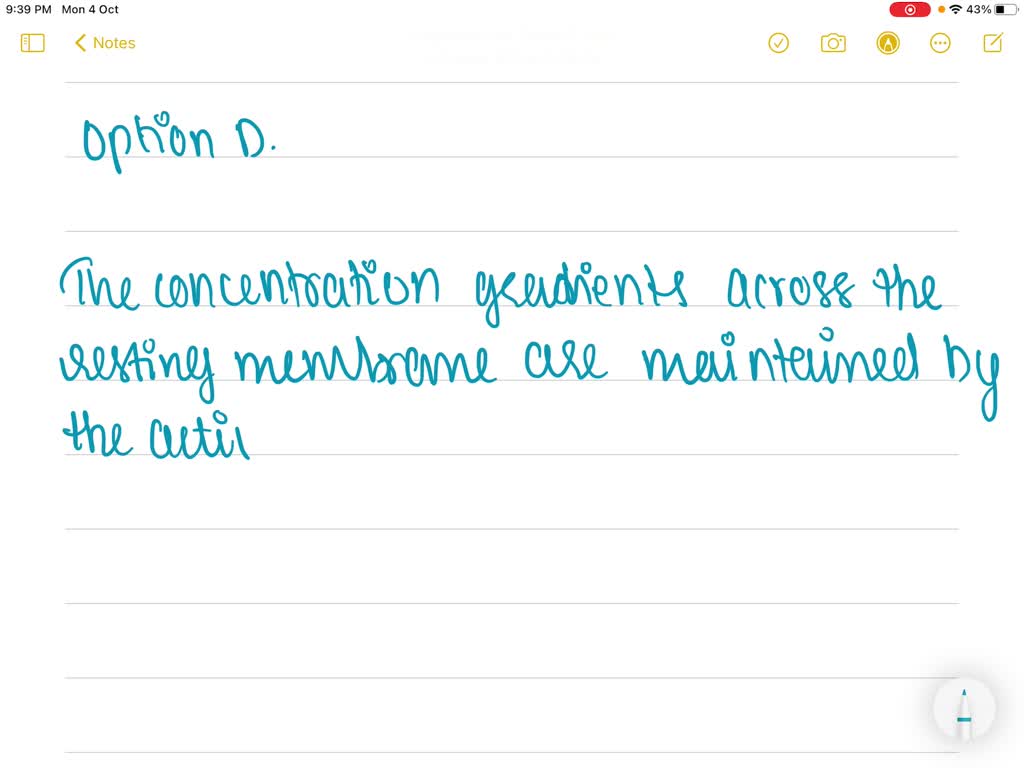 9:39 PM Mon 4 Oct 43%
Notes
Option D.
The concentration gradients across the
resting membrane are maintained by
the acti